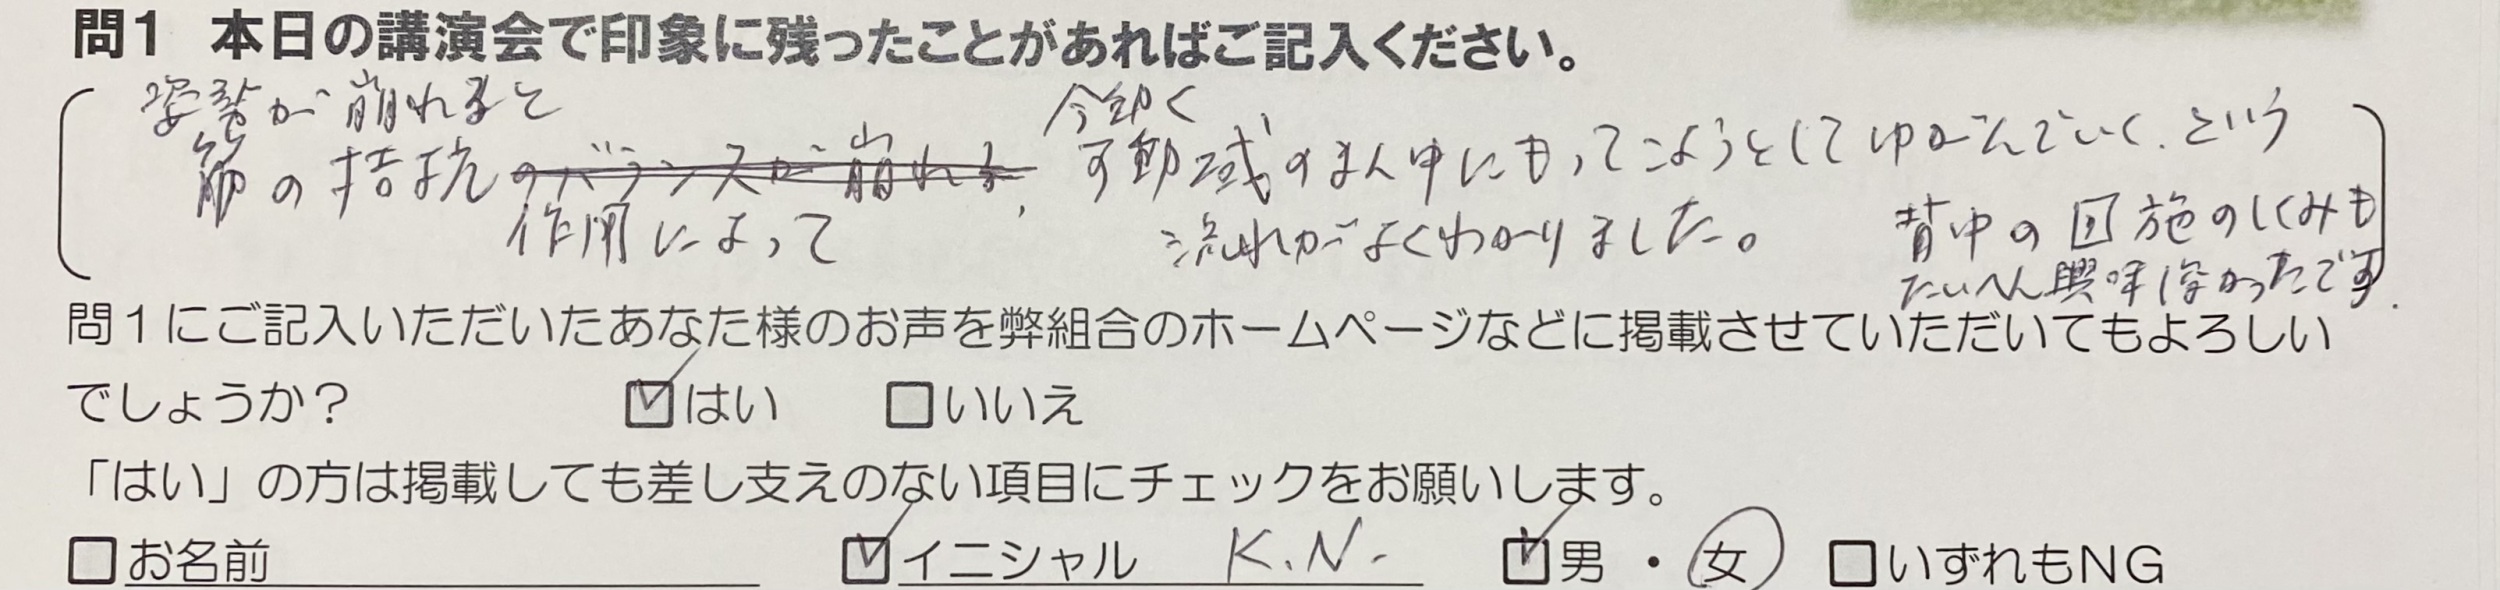 問1 本日の講演会で印象に残ったことがあればご記入ください。
姿勢が崩れると
筋の拮抗のバランスが崩れる、
作用によって
可動域のまん中にもってこようとしてゆがんでいく、という
流れがよくわかりました。
背中の回施のしくみも
たいへん興味深かったです.
問1にご記入いただいたあなた様のお声を弊組合のホームページなどに掲載させていただいてもよろしい
でしょうか?
☑はい □いいえ
「はい」の方は掲載しても差し支えのない項目にチェックをお願いします。
□お名前 ☑イニシャル K.N. ☑男・女 □いずれもNG